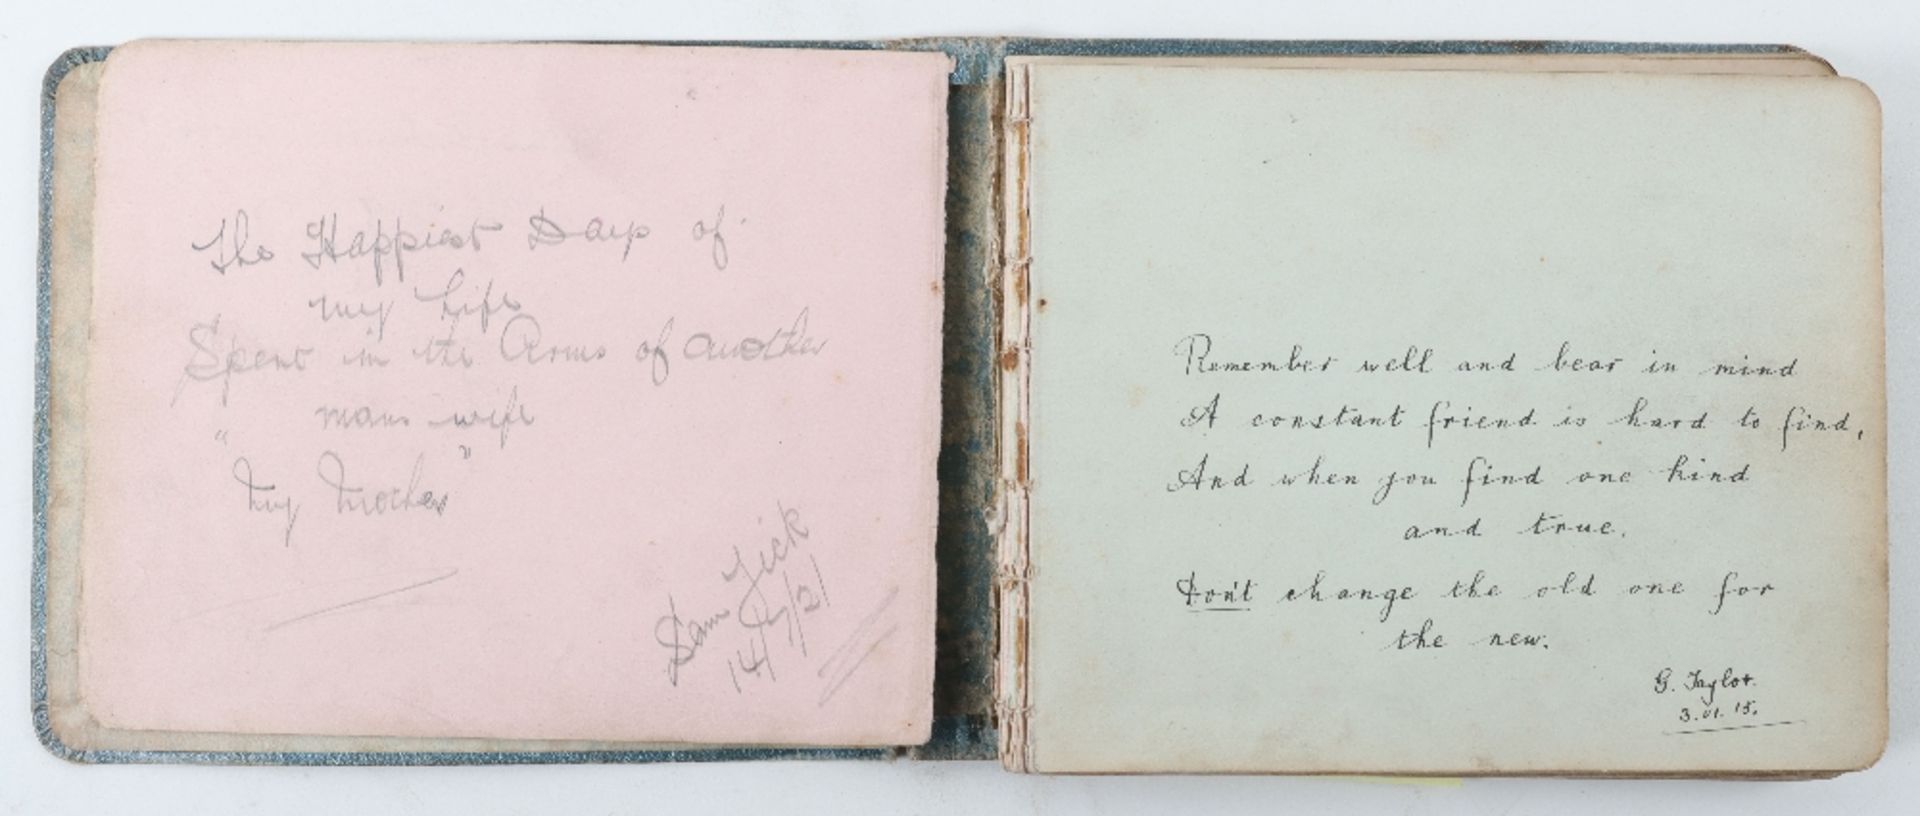 The Happiest Days of
my Life
Spent in the Arms of another
mans wife
"
My Mother"
Sam
14/ /21
Remember well and bear in mind
A constant friend is hard to find,
And when you find one kind
and true.
Don't change the old one for
the new.
G. Taylor.
3. VI. 15.